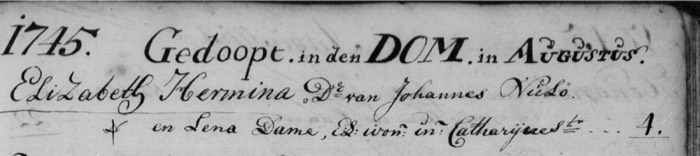 1745. Gedoopt. in den DOM. in AUGUSTUS.
ELIZabeth Hermina Dr. van Johannes
en Lena Dame, El: won: in: Catharijnestr ... 4.